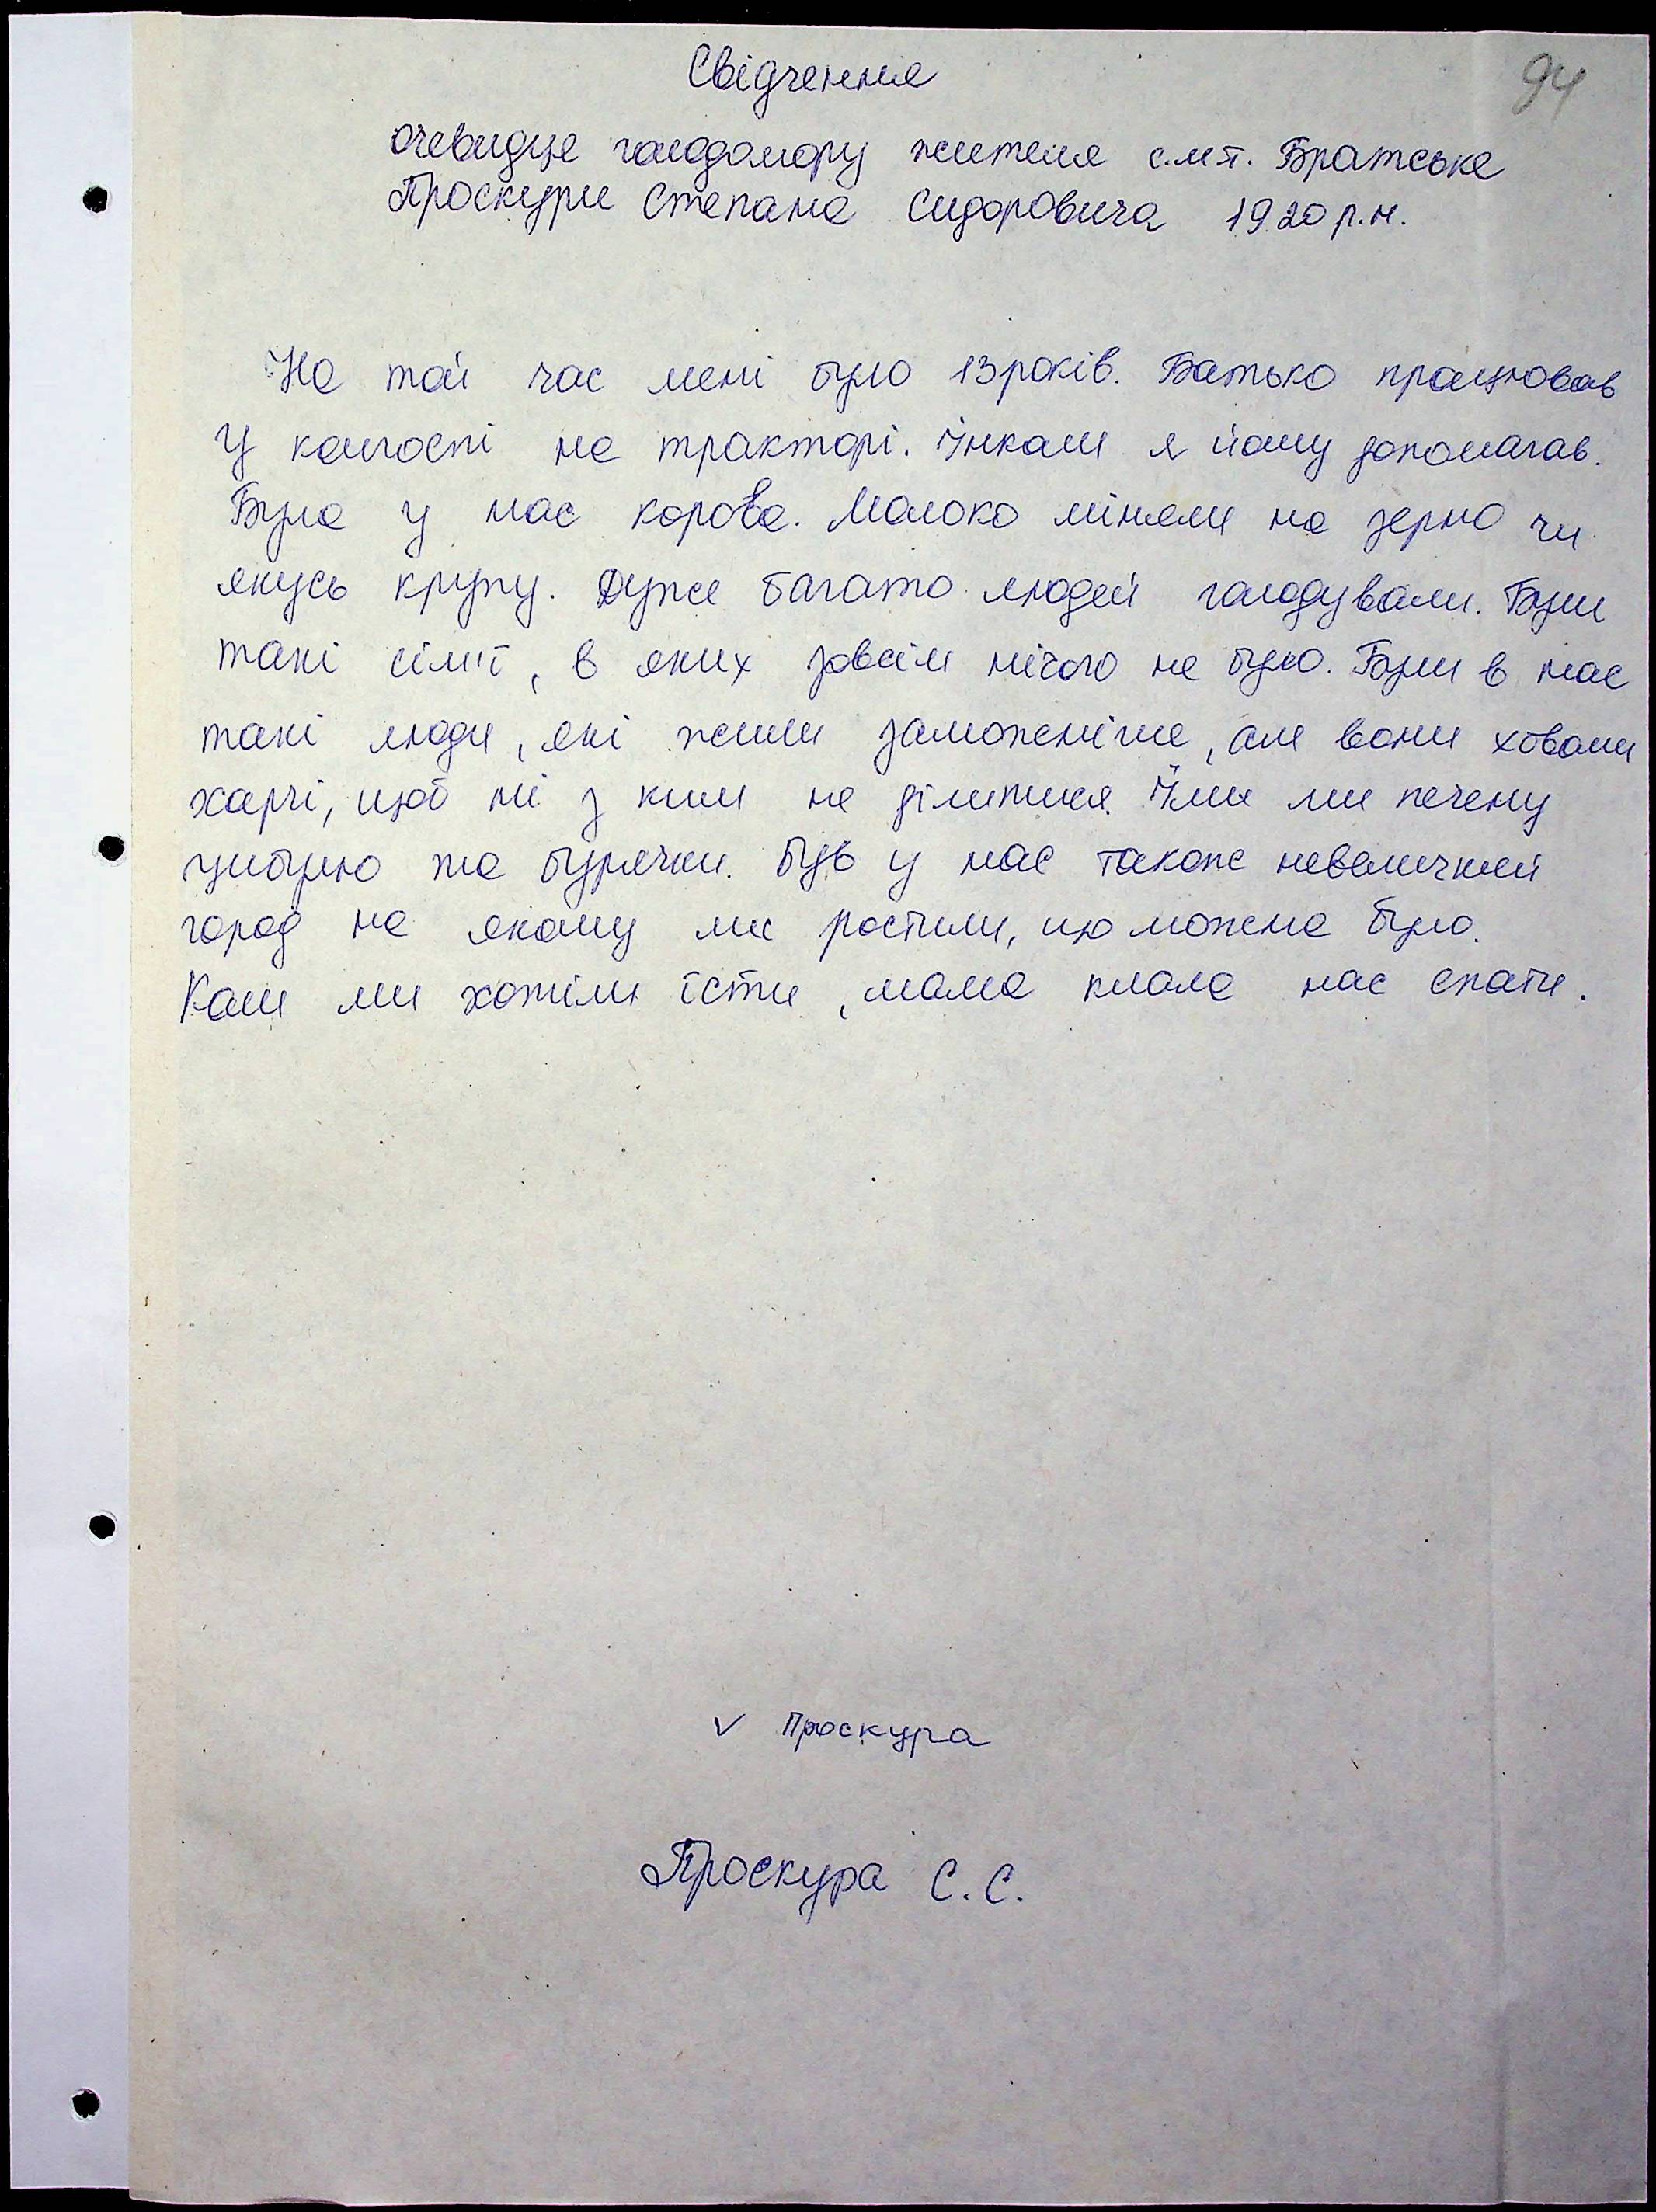 94
Свідчення
очевидця голодомору жителя с.м.т. Братське
Проскури Степана Сидоровича 1920 р.н.
На той час мені було 13 років. Батько працював
у колгоспі на тракторі. Інколи я йому допомагав.
Була у нас корова. Молоко міняли на зерно чи
якусь крупу. Дуже багато людей голодували. Були
такі сім'ї, в яких зовсім нічого не було. Були в нас
такі люди, які жили заможніше, але вони ховали
харчі, щоб ні з ким не ділитися. Їли ми печену
цибулю та бурячки. Був у нас також невеличкий
город на якому ми ростили, що можна було.
Коли ми хотіли їсти, мама клала нас спати.
v Проскура
Проскура С. С.